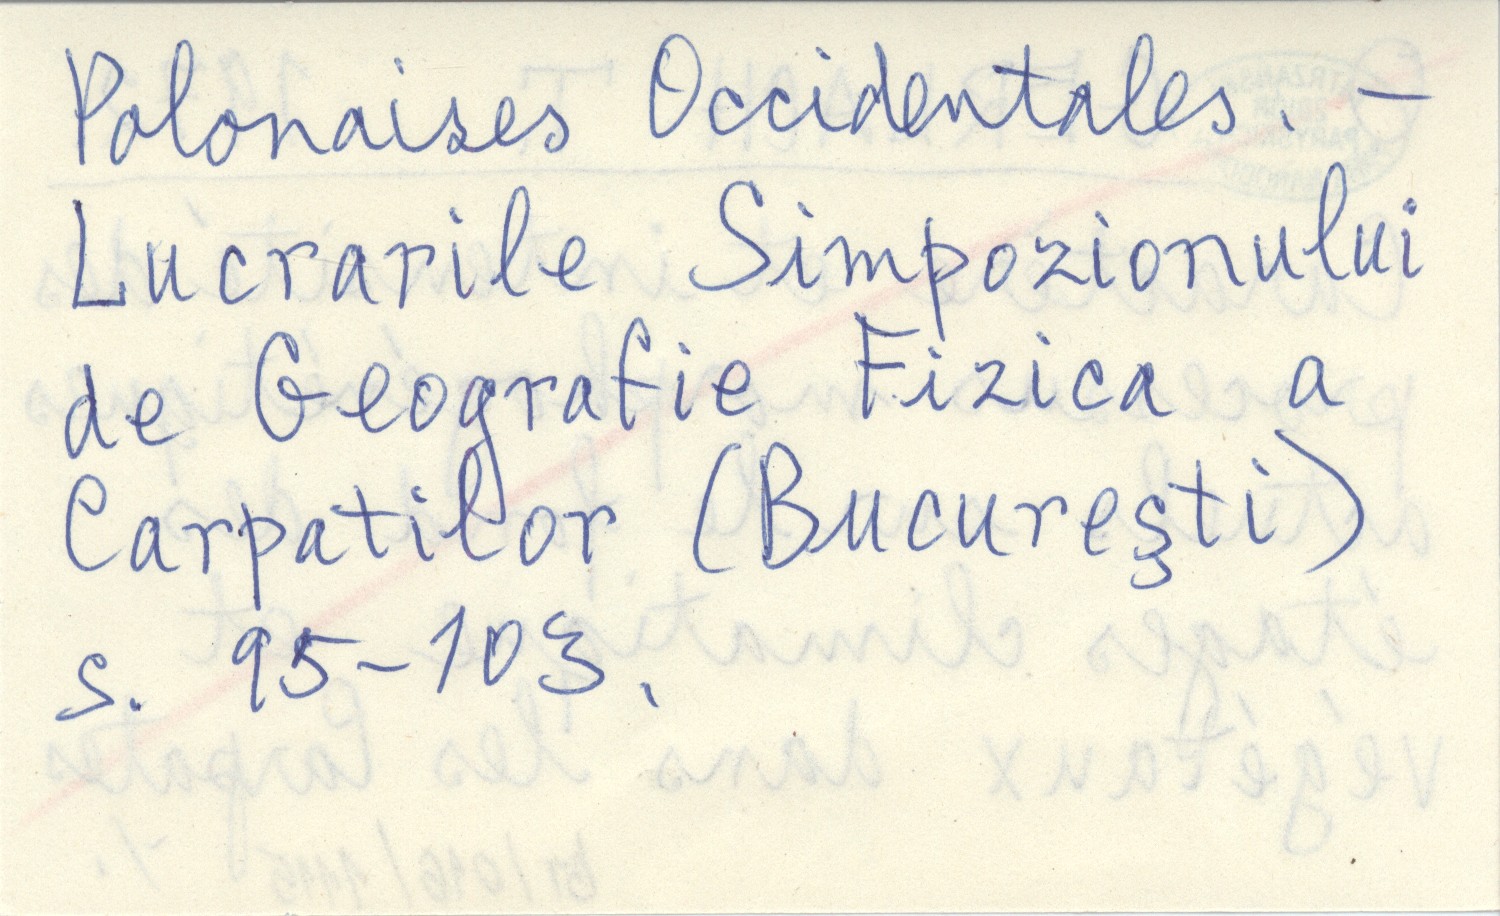 Polonaises Occidentales. –
Lucrarile Simpozionului
de Geografie Fizica a
Carpatilor (Bucureşti)
s. 95–103.